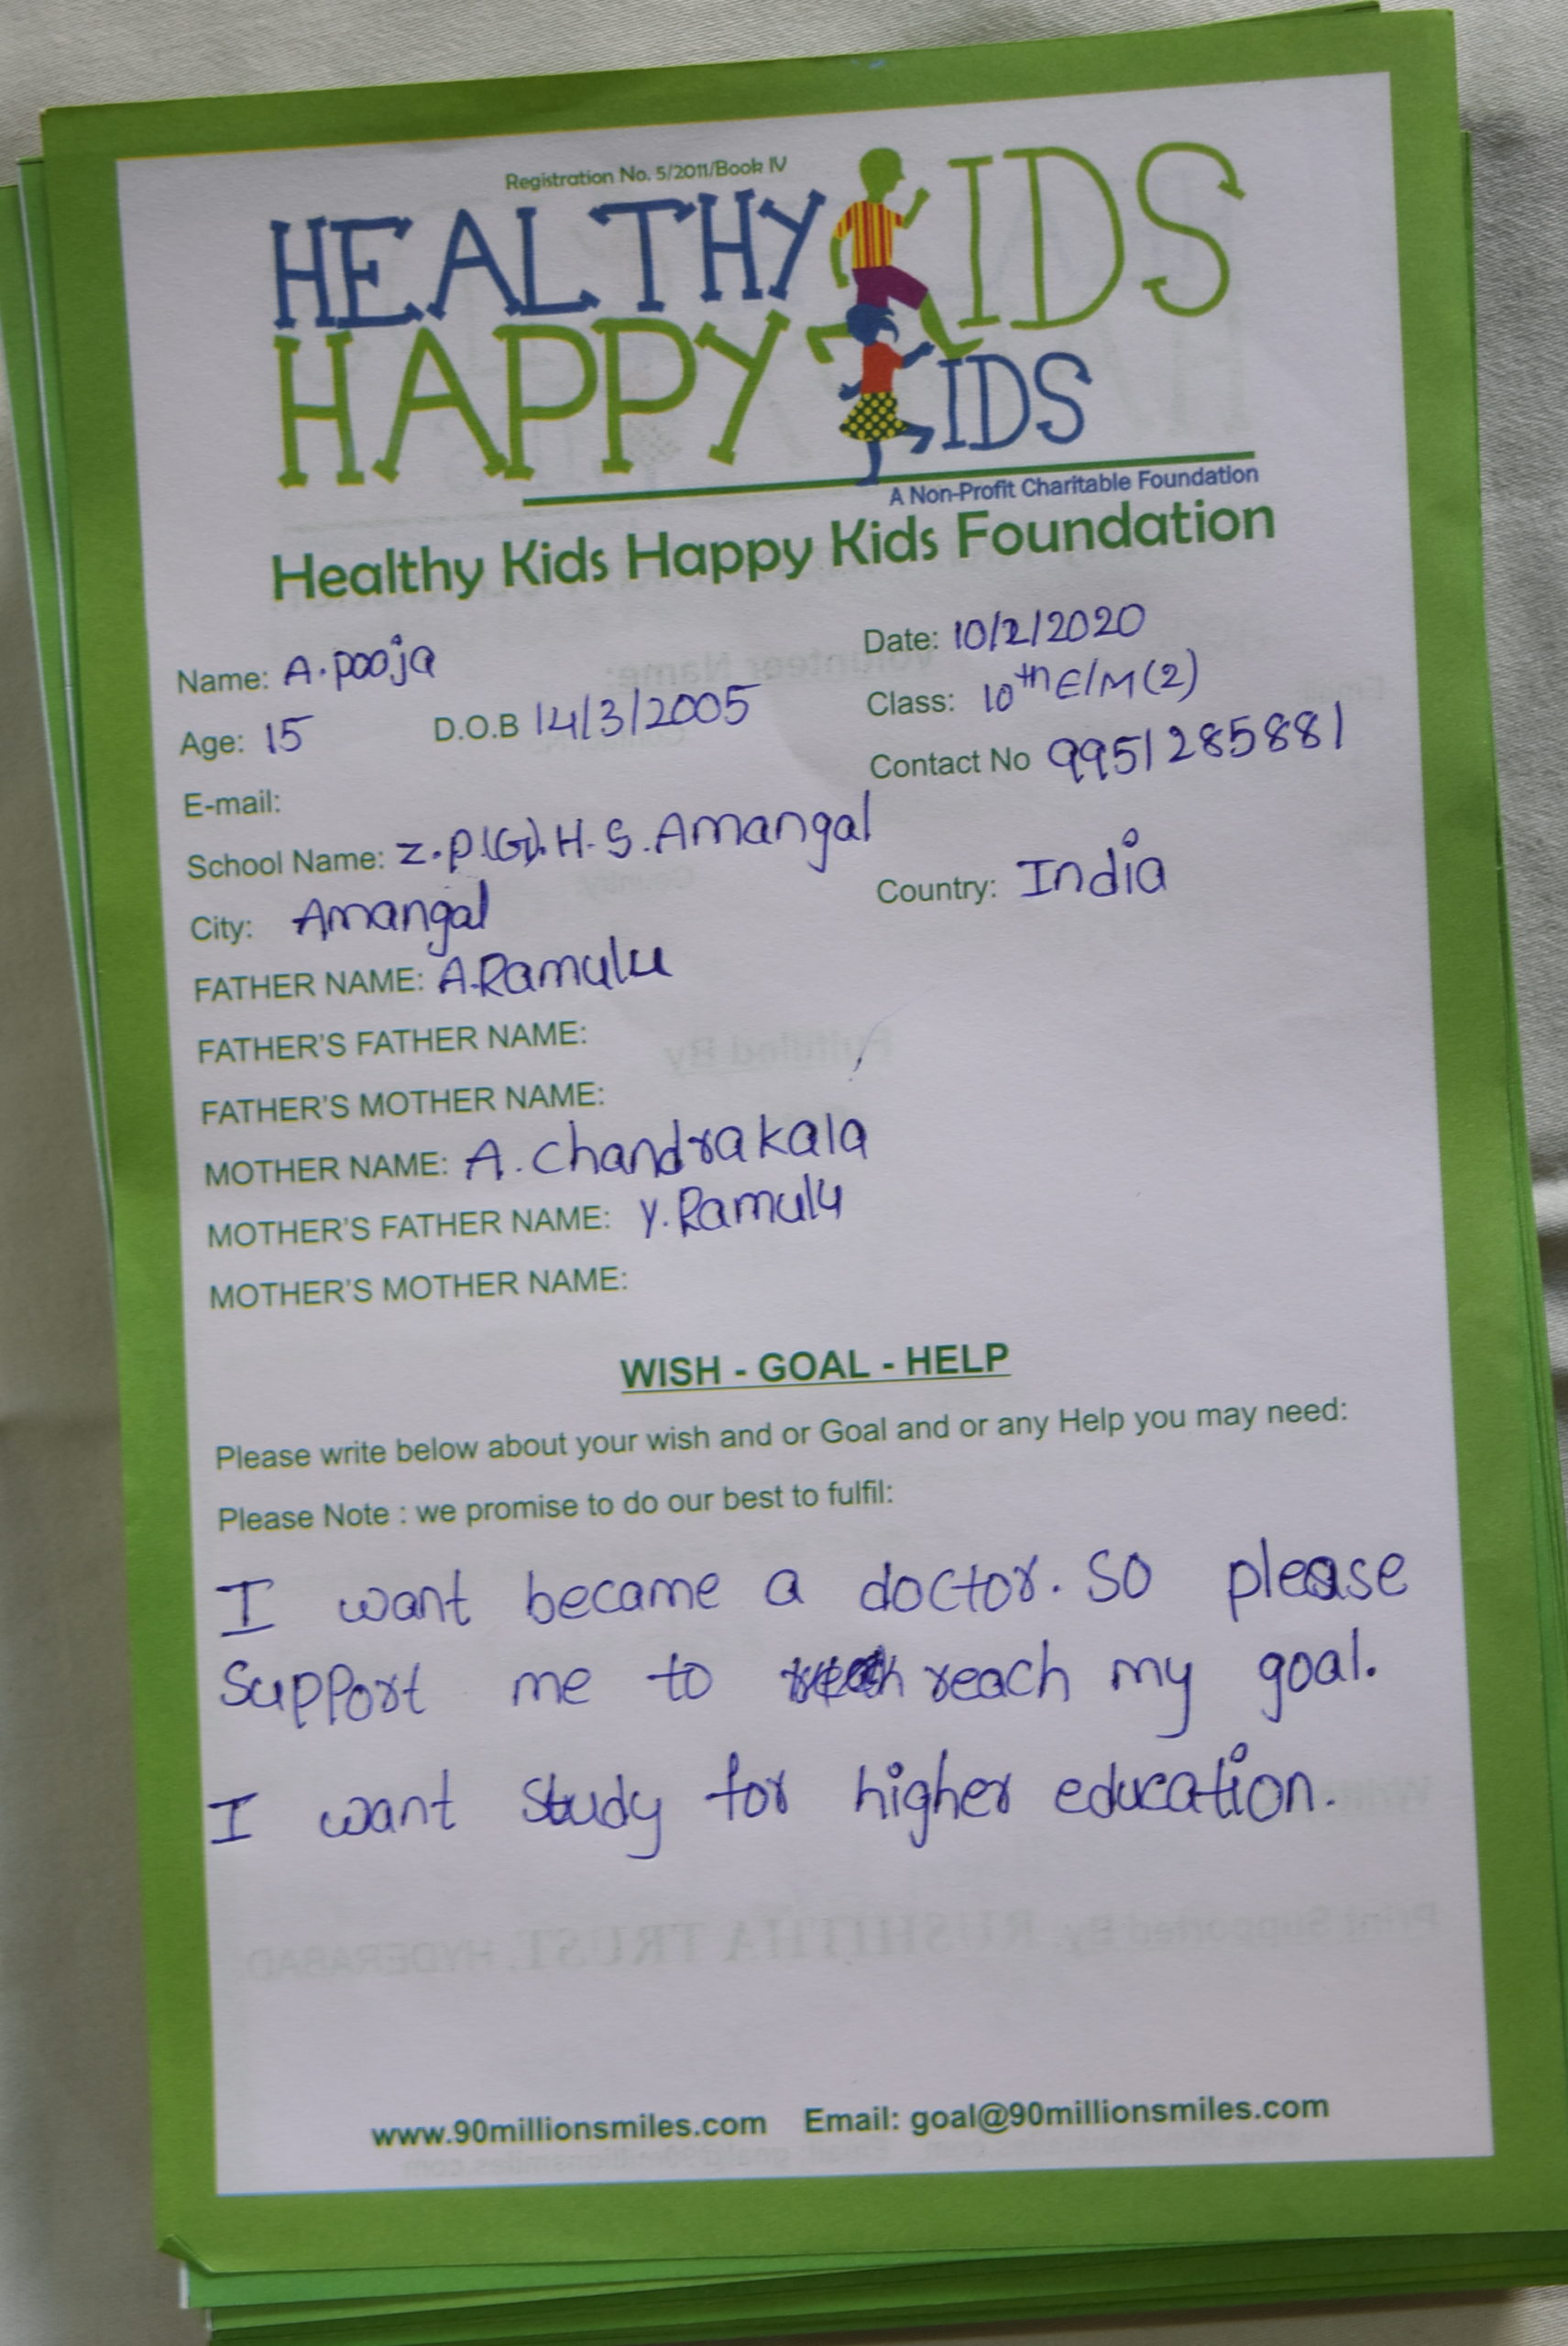 Registration No. 5/2011/Book IV
HEALTHY KIDS
HAPPY KIDS
A Non-Profit Charitable Foundation
Healthy Kids Happy Kids Foundation
Name: A. pooja Date: 10/2/2020
Age: 15 D.O.B 14/3/2005 Class: 10th E/M (2)
E-mail: Contact No 9951285881
School Name: Z.P.(G).H.S. Amangal
City: Amangal Country: India
FATHER NAME: A.Ramulu
FATHER'S FATHER NAME:
FATHER'S MOTHER NAME:
MOTHER NAME: A. Chandrakala
MOTHER'S FATHER NAME: Y. Ramulu
MOTHER'S MOTHER NAME:
WISH - GOAL - HELP
Please write below about your wish and or Goal and or any Help you may need:
Please Note : we promise to do our best to fulfil:
I want became a doctor. So please
Support me to reach my goal.
I want study for higher education.
www.90millionsmiles.com Email: goal@90millionsmiles.com